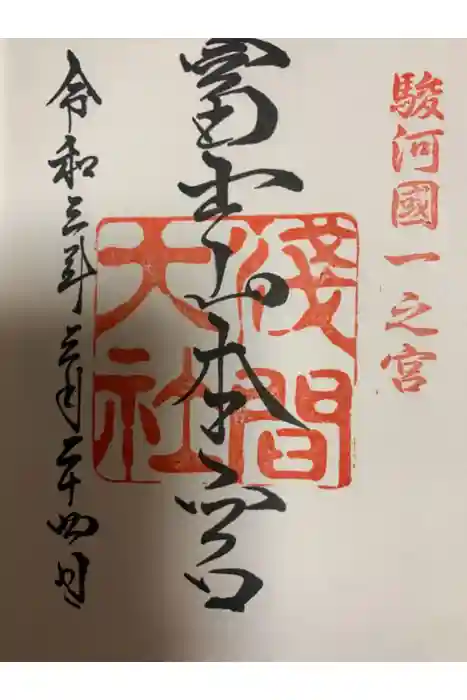 駿河國一之宮
富士山本宮
淺間
大社
令和三年三月二十四日